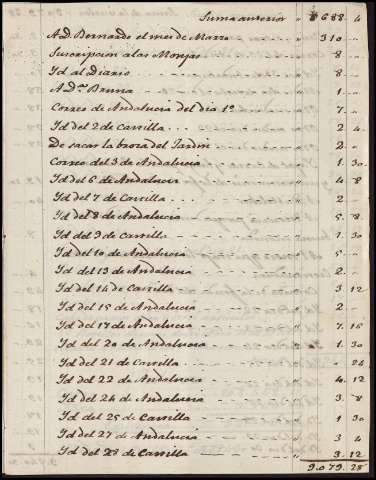 Suma anterior " 8688. 4
A D. Bernardo el mes de Marzo " 310.
Suscripcion a las Monjas " 8
Yd al Diario " 8
A Dª Bruna " 1
Correo de Andalucia del dia 1º " 7
Yd del 2 de Castilla " 2. 4
De sacar la broza del Jardin " 2
Correo del 3 de Andalucia " 1. 30
Yd del 6 de Andalucia " 4. 8
Yd del 7 de Castilla " 2
Yd del 8 de Andalucia " 5. 8
Yd del 9 de Castilla " 1. 30
Yd del 10 de Andalucia " 5
Yd del 13 de Andalucia " 2
Yd del 14 de Castilla " 3. 12
Yd del 15 de Andalucia " 2
Yd del 17 de Andalucia " 7. 16
Yd del 20 de Andalucia " 1. 30
Yd del 21 de Castilla " 24
Yd del 22 de Andalucia " 4. 12
Yd del 24 de Andalucia " 3. 8
Yd del 25 de Castilla " 1. 30
Yd del 27 de Andalucia " 3. 4
Yd del 28 de Castilla " 3. 12
9.079. 28